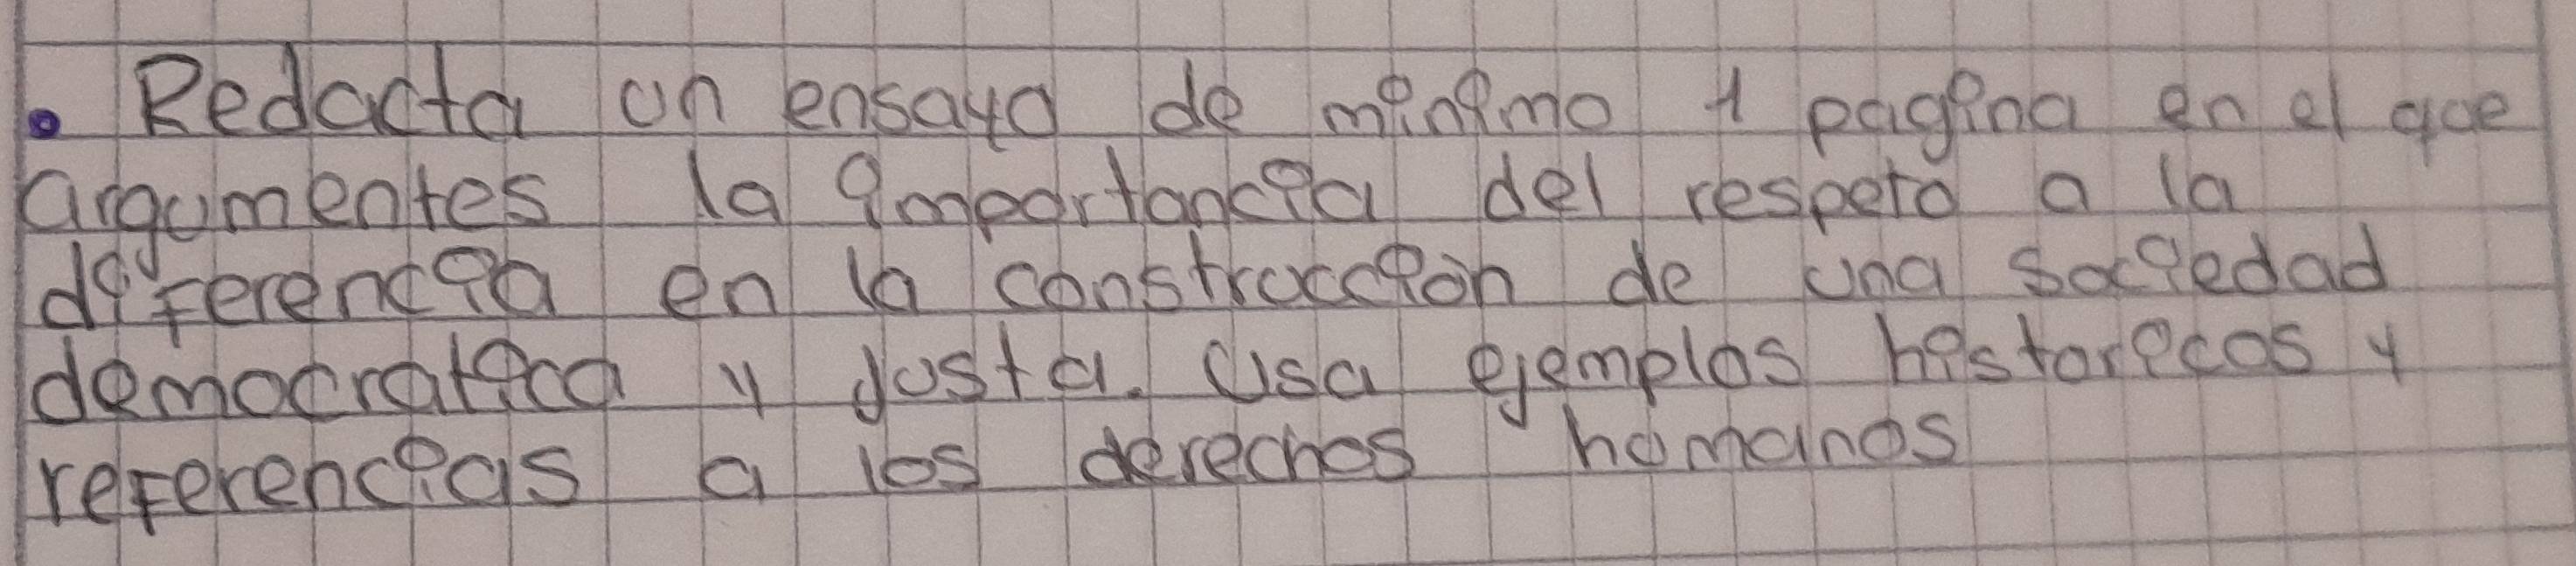 • Redacta un ensayo de minimo 1 pagina en el que
argumentes la importancia del respeto a la
diferencia en la construcción de una sociedad
democratica y justa. Usa ejemplos historicos y
referencias a los derechos humanos